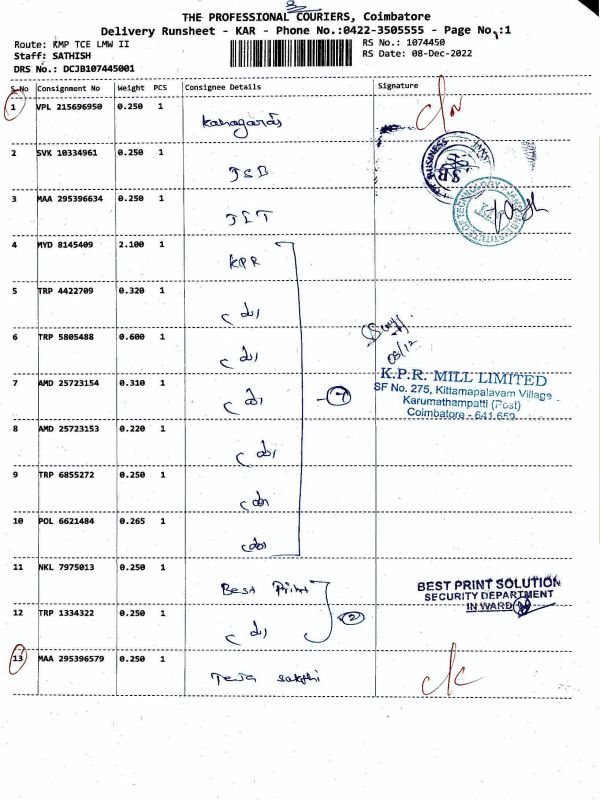 THE PROFESSIONAL COURIERS, Coimbatore
Delivery Runsheet - KAR - Phone No.:0422-3505555 - Page No.:1
Route: KMP TCE LMW II
RS No.: 1074450
Staff: SATHISH
RS Date: 08-Dec-2022
DRS No.: DCJB107445001
S.No Consignment No Weight PCS Consignee Details Signature
1 VPL 215696950 0.250 1
2 SVK 10334961 0.250 1 JSB
3 MAA 295396634 0.250 1 JIT
4 MYD 8145409 2.100 1 KPR
5 TRP 4422709 0.320 1
6 TRP 5805488 0.600 1
08/12
7 AMD 25723154 0.310 1 7
K.P.R. MILL LIMITED
SF No. 275, Kittampalavam Village
Karumathampatti (Post)
Coimbatore - 641 659
8 AMD 25723153 0.220 1
9 TRP 6855272 0.250 1
10 POL 6621484 0.265 1
11 NKL 7975013 0.250 1 Best Print
BEST PRINT SOLUTION
SECURITY DEPARTMENT
IN WARD
12 TRP 1334322 0.250 1 2
13 MAA 295396579 0.250 1 Teja Sakthi